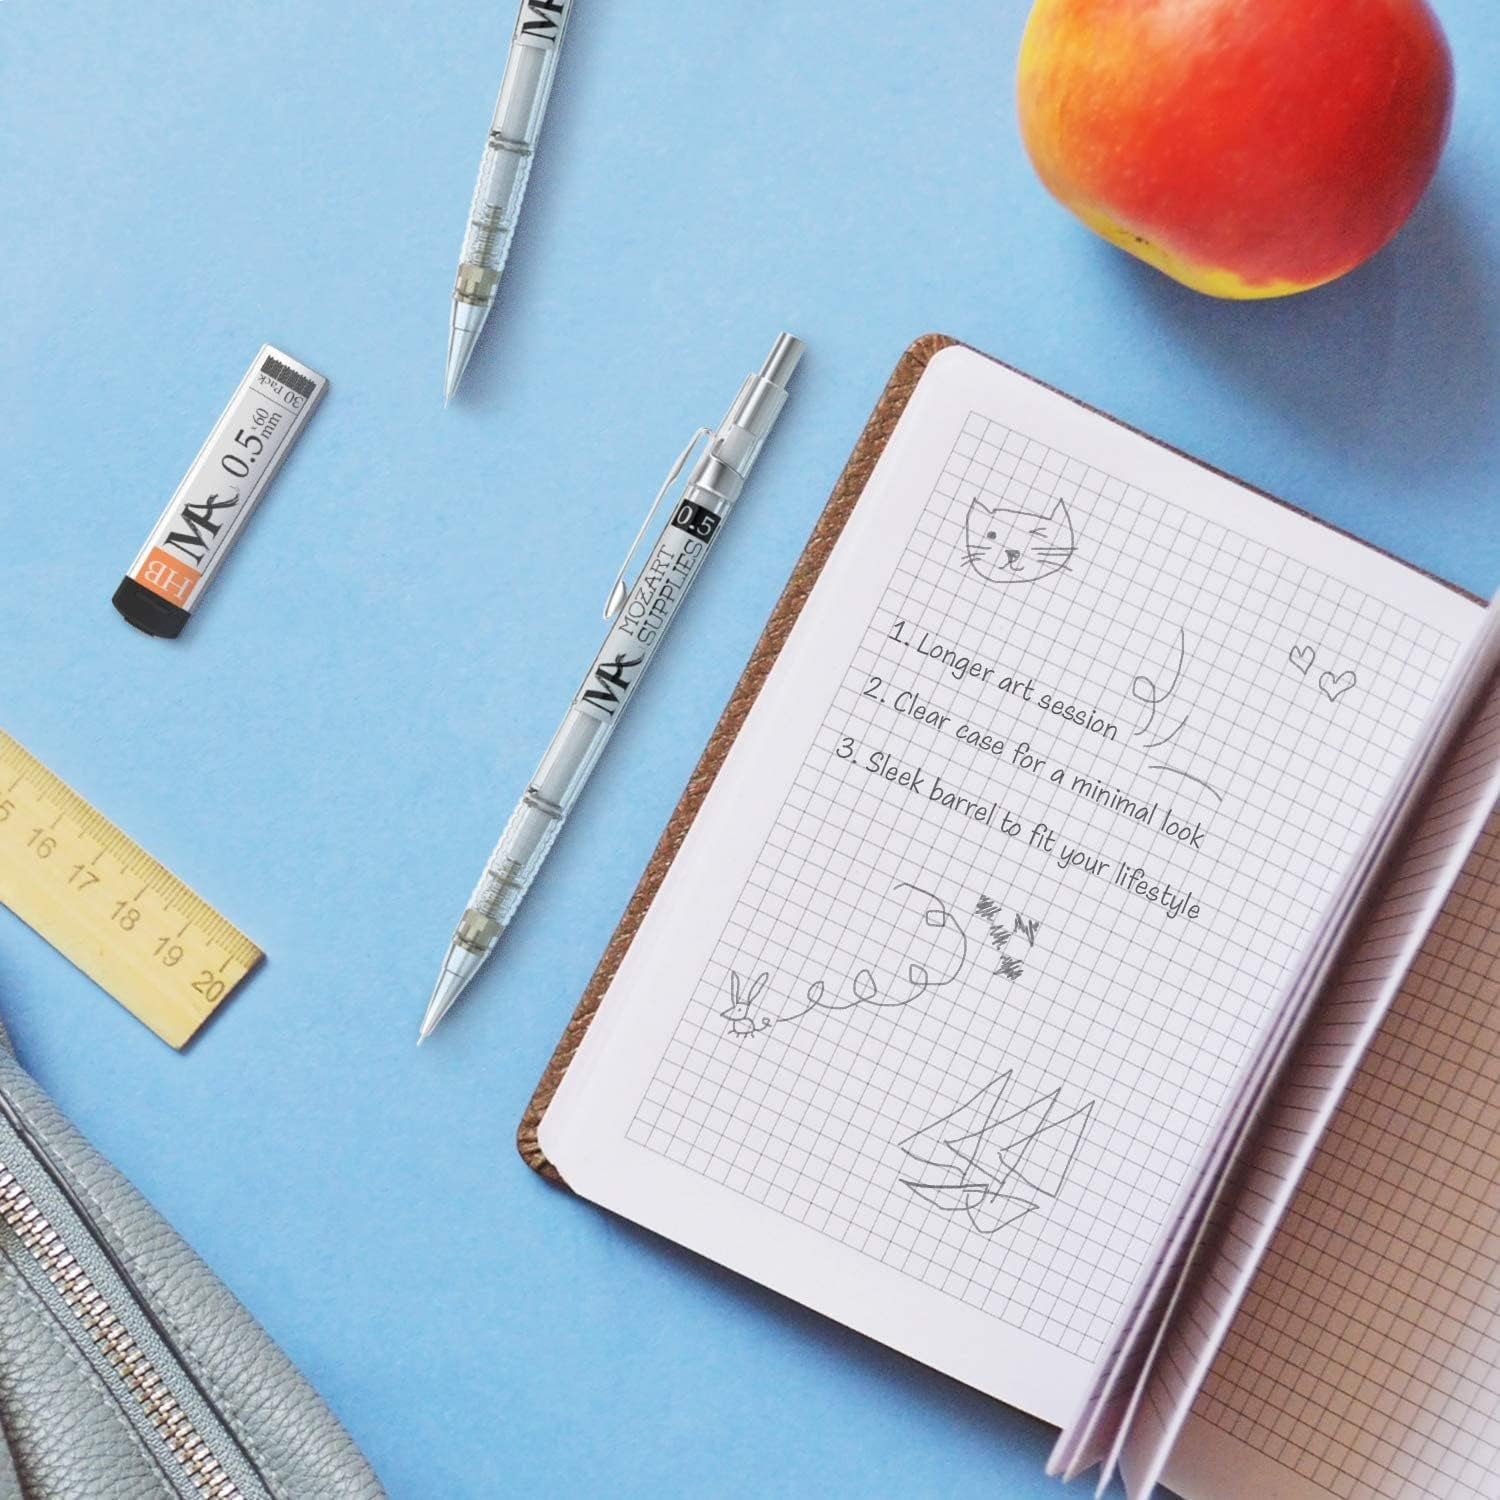 MA
30 Pack
0.5×60
mm
MA
HB
0.5
MOZART
SUPPLIES
MA
1. Longer art session
2. Clear case for a minimal look
3. Sleek barrel to fit your lifestyle
5
16
17
18
19
20